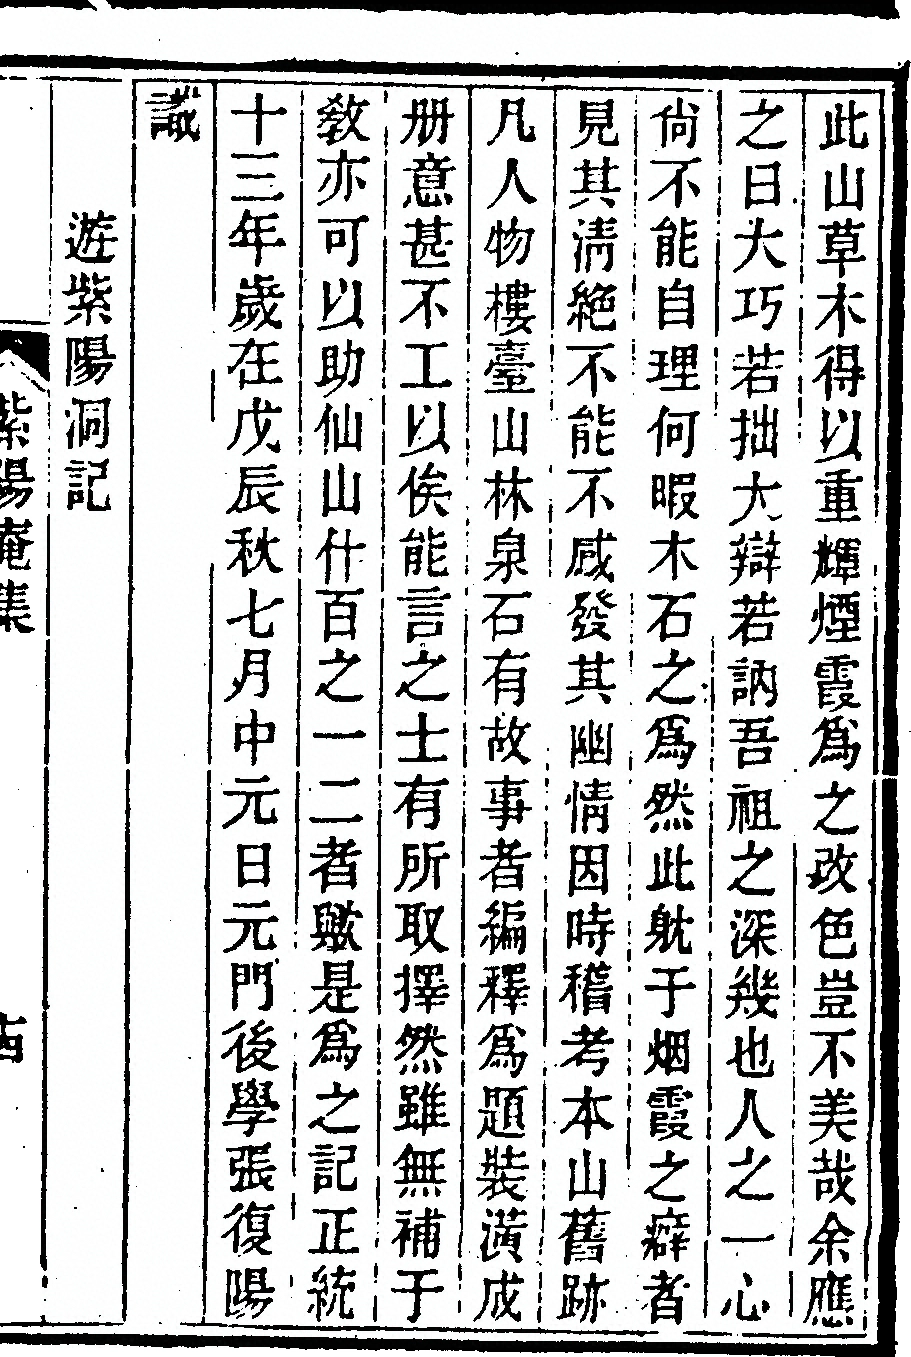 此山草木得以重輝煙霞爲之改色豈不美哉余應
之曰大巧若拙大辯若訥吾祖之深幾也人之一心
尙不能自理何暇木石之爲然此躭于烟霞之癖者
見其淸絕不能不感發其幽情因時稽考本山舊跡
凡人物樓臺山林泉石有故事者編釋爲題裝潢成
册意甚不工以俟能言之士有所取擇然雖無補于
敎亦可以助仙山什百之一二者歟是爲之記正統
十三年歲在戊辰秋七月中元日元門後學張復陽
識
遊紫陽洞記
紫陽庵集